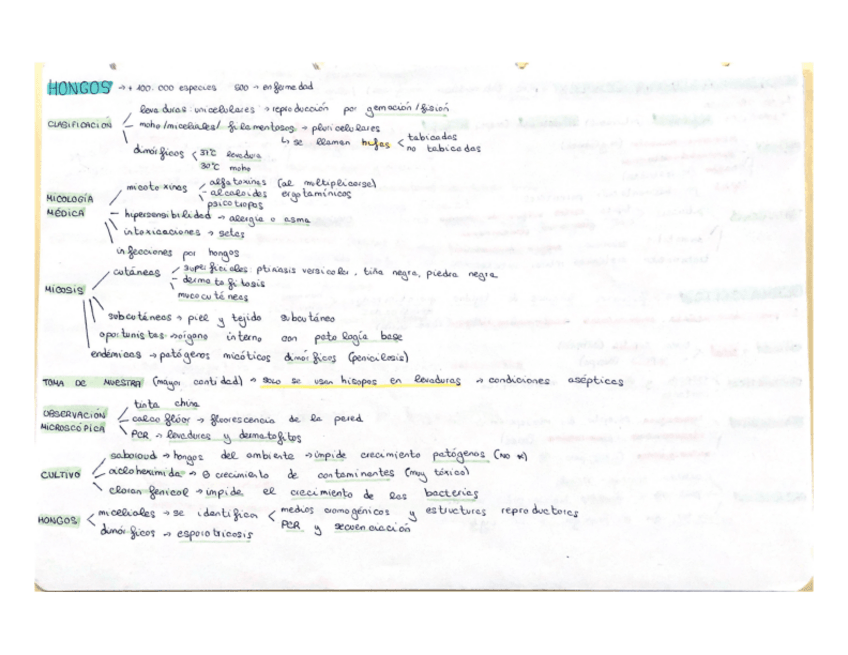 HONGOS → + 100.000 especies 500 → enfermedad
levaduras unicelulares → reproducción por gemación / fisión
CLASIFICACIÓN moho/miceliales/ filamentosos → pluricelulares
↳ se llaman hifas tabicadas
no tabicadas
dimórficos 37ºC levadura
30ºC moho
MICOLOGÍA MÉDICA
micotoxinas alfatoxinas (al multiplicarse)
alcaloides ergotamínicos
psicotropos
hipersensibilidad → alergia o asma
intoxicaciones → setas
infecciones por hongos
MICOSIS cutáneas superficiales: ptiriasis versicolor, tiña negra, piedra negra
dermatofitosis
mucocutáneas
subcutáneas → piel y tejido subcutáneo
oportunistas → órgano interno con patología base
endémicas → patógenos micóticos dimórficos (penicilosis)
TOMA DE MUESTRA (mayor cantidad) → solo se usan hisopos en levaduras → condiciones asépticas
OBSERVACIÓN MICROSCÓPICA
tinta china
calcoflúor → fluorescencia de la pared
PCR → levaduras y dermatofitos
CULTIVO
saboroud → hongos del ambiente → impide crecimiento patógenos (no *)
cicloheximida → ⊖ crecimiento de contaminantes (muy tóxico)
cloranfenicol → impide el crecimiento de las bacterias
HONGOS miceliales → se identifican medios cromogénicos y estructuras reproductoras
PCR y secuenciación
dimórficos → esporotricosis